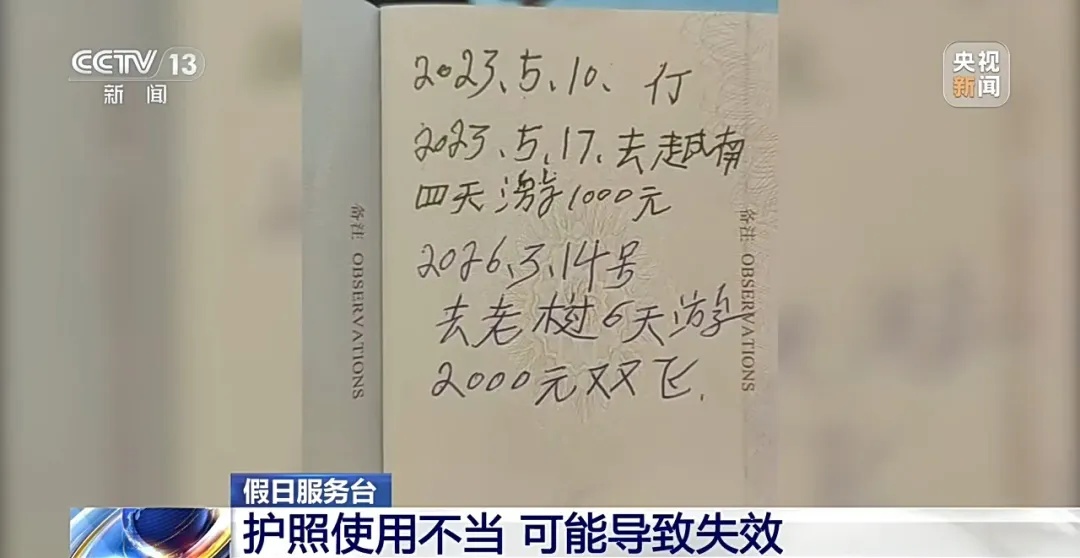 CCTV 13
新闻
央视
新闻
2023、5、10、行
2023、5、17、去越南
四天游1000元
2026、3、14号
去老树6天游
2000元双飞.
备注 OBSERVATIONS
备注 OBSERVATIONS
假日服务台
护照使用不当 可能导致失效